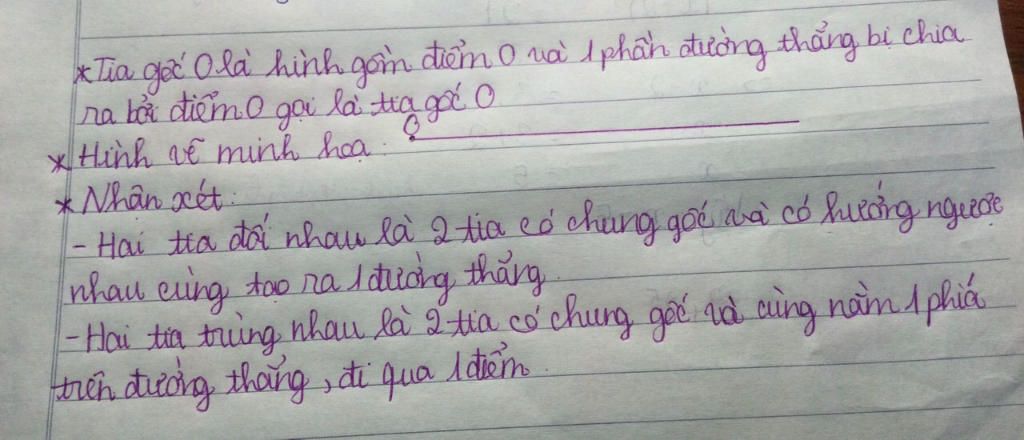 *Tia gốc O là hình gồm điểm O và 1 phần đường thẳng bị chia
ra bởi điểm O gọi là tia gốc O
O
* Hình vẽ minh hoạ:
* Nhận xét:
- Hai tia đối nhau là 2 tia có chung gốc và có hướng ngược
nhau cùng tạo ra 1 đường thẳng.
- Hai tia trùng nhau là 2 tia có chung gốc và cùng nằm 1 phía
trên đường thẳng, đi qua 1 điểm.